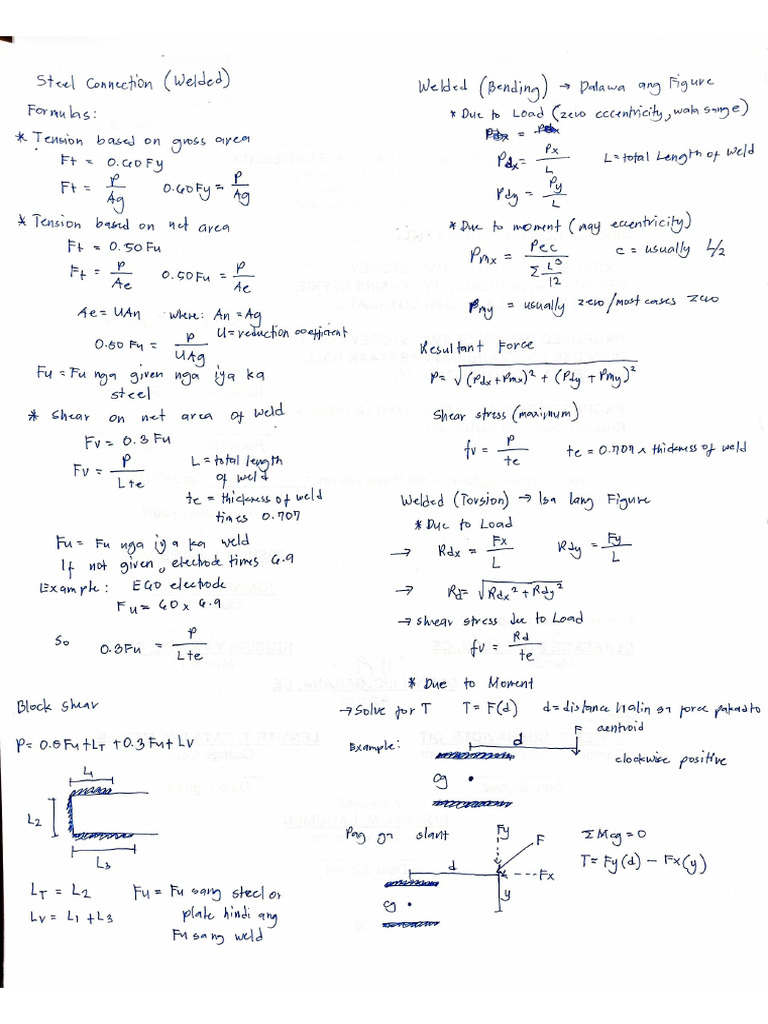 Steel Connection (Welded)
Formulas:
* Tension based on gross area
Ft = 0.60Fy
Ft = P/Ag 0.60Fy = P/Ag
* Tension based on net area
Ft = 0.50Fu
Ft = P/Ae 0.50Fu = P/Ae
Ae = UAn where: An = Ag
U = reduction coefficient
0.50Fu = P/UAg
Fu = Fu nga given nga iya ka
steel
* Shear on net area of weld
Fv = 0.3Fu
Fv = P/Lte L = total length
of weld
te = thickness of weld
times 0.707
Fu = Fu nga iya ka weld
If not given, electrode times 6.9
Example: E60 electrode
Fu = 60 x 6.9
So 0.3Fu = P/Lte
Block shear
P = 0.5Fu+LT + 0.3Fu+LV
L1
L2
L3
LT = L2 Fu = Fu sang steel or
LV = L1 + L3 plate hindi ang
Fu sang weld
Welded (Bending) → Dalawa ang Figure
* Due to Load (zero eccentricity, wala sang e)
Pdx = Px/L L = total Length of weld
Pdy = Py/L
* Due to moment (may eccentricity)
Pmx = Pec/Σ L³/12 c = usually L/2
Pmy = usually zero/most cases zero
Resultant Force
P = √(Pdx + Pmx)² + (Pdy + Pmy)²
Shear stress (maximum)
fv = P/te te = 0.707 x thickness of weld
Welded (Torsion) → Isa lang Figure
* Due to Load
→ Rdx = Fx/L Rdy = Fy/L
→ Rd = √Rdx² + Rdy²
→ Shear stress due to Load
fv = Rd/te
* Due to Moment
→ Solve for T T = F(d) d = distance halin sa force pakadto
centroid
Example: d F
clockwise positive
cg
Pag ga slant Fy F ΣMcg = 0
d Fx T = Fy(d) - Fx(y)
cg y